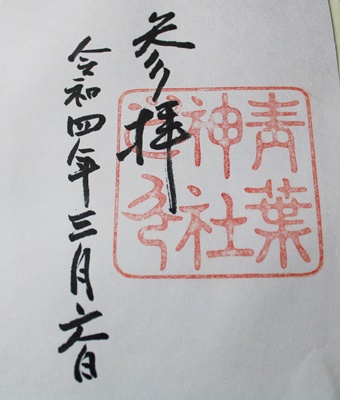 参拝
令和四年三月六日
青葉
神社